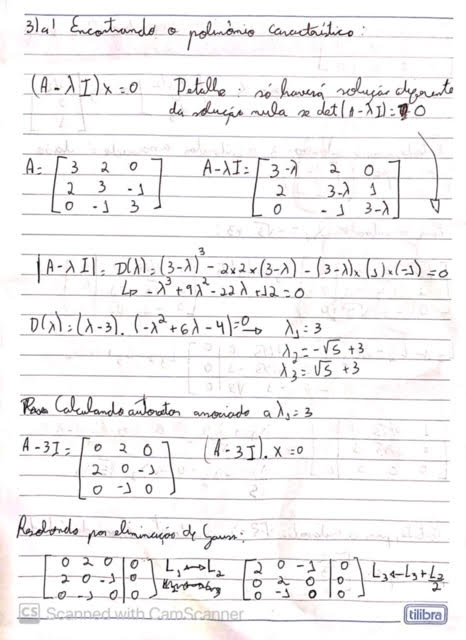 3)a) Encontrando o polinômio característico:
(A - λI)x = 0 Detalhe: só haverá solução diferente
da solução nula se det(A - λI) = 0
A = [3 2 0; 2 3 -1; 0 -1 3] A - λI = [3-λ 2 0; 2 3-λ 1; 0 -1 3-λ]
|A - λI| = D(λ) = (3-λ)³ - 2x2x(3-λ) - (3-λ)x(1)x(-1) = 0
↳ -λ³ + 9λ² - 22λ + 12 = 0
D(λ) = (λ-3).(-λ² + 6λ - 4) = 0 → λ₁ = 3
λ₂ = -√5 + 3
λ₃ = √5 + 3
Calculando autovetor associado a λ₁ = 3
A - 3I = [0 2 0; 2 0 -1; 0 -1 0] (A - 3I).x = 0
Resolvendo por eliminação de Gauss:
[0 2 0 | 0; 2 0 -1 | 0; 0 -1 0 | 0] L₁ ↔ L₂ [2 0 -1 | 0; 0 2 0 | 0; 0 -1 0 | 0] L₃ ← L₃ + L₂/2
CS Scanned with CamScanner
tilibra